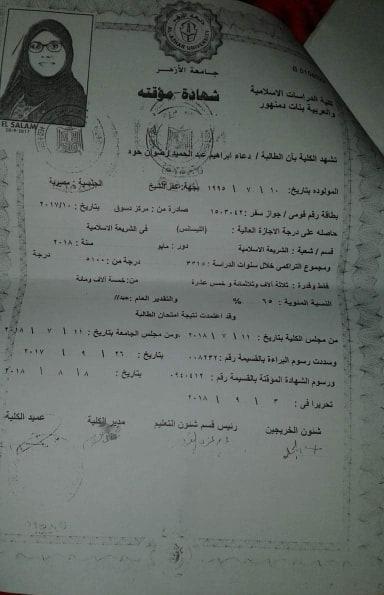 AL-AZHAR UNIVERSITY
جامعة الأزهر
كلية الدراسات الاسلامية
والعربية بنات دمنهور
شهادة مؤقته
EL SALAM
تشهد الكلية بأن الطالبة / دعاء ابراهيم عبد الحميد رضوان حود
المولوده بتاريخ: ١٠ / ٧ / ١٩٩٥ بجهة: كفر الشيخ الجنسية: مصرية
بطاقة رقم قومى / جواز سفر : ١٥٠٣٠٤٢ صادرة من : مركز دسوق بتاريخ : ٢٠١٧/١٠
حاصله على درجة الاجازة العالية : (الليسانس) فى الشريعة الاسلامية
قسم / شعبية : الشريعة الاسلامية دور : مايو سنة : ٢٠١٨
ومجموع التراكمي خلال سنوات الدراسة : ٣٣١٥ درجة من : ٥١٠٠ درجة
فقط وقدرة : ثلاثة آلاف وثلاثمائة و خمس عشرة من : خمسة آلاف ومائة
النسبة المئوية : ٦٥ % والتقدير العام : جيد//
وقد اعتمدت نتيجة امتحان الطالبة
من مجلس الكلية بتاريخ : ١١ / ٧ / ٢٠١٨ ومن مجلس الجامعة بتاريخ : ١١ / ٧ / ٢٠١٨
وسددت رسوم البراءة بالقسيمة رقم : ٠٠٨٢٣٢ بتاريخ : ٢٦ / ٩ / ٢٠١٧
ورسوم الشهادة المؤقتة بالقسيمة رقم : ٠٩٤٠٤١٢ بتاريخ : ٨ / ٨ / ٢٠١٨
تحريرا فى : ٣ / ٩ / ٢٠١٨
شئون الخريجين رئيس قسم شئون التعليم مدير الكلية عميد الكلية